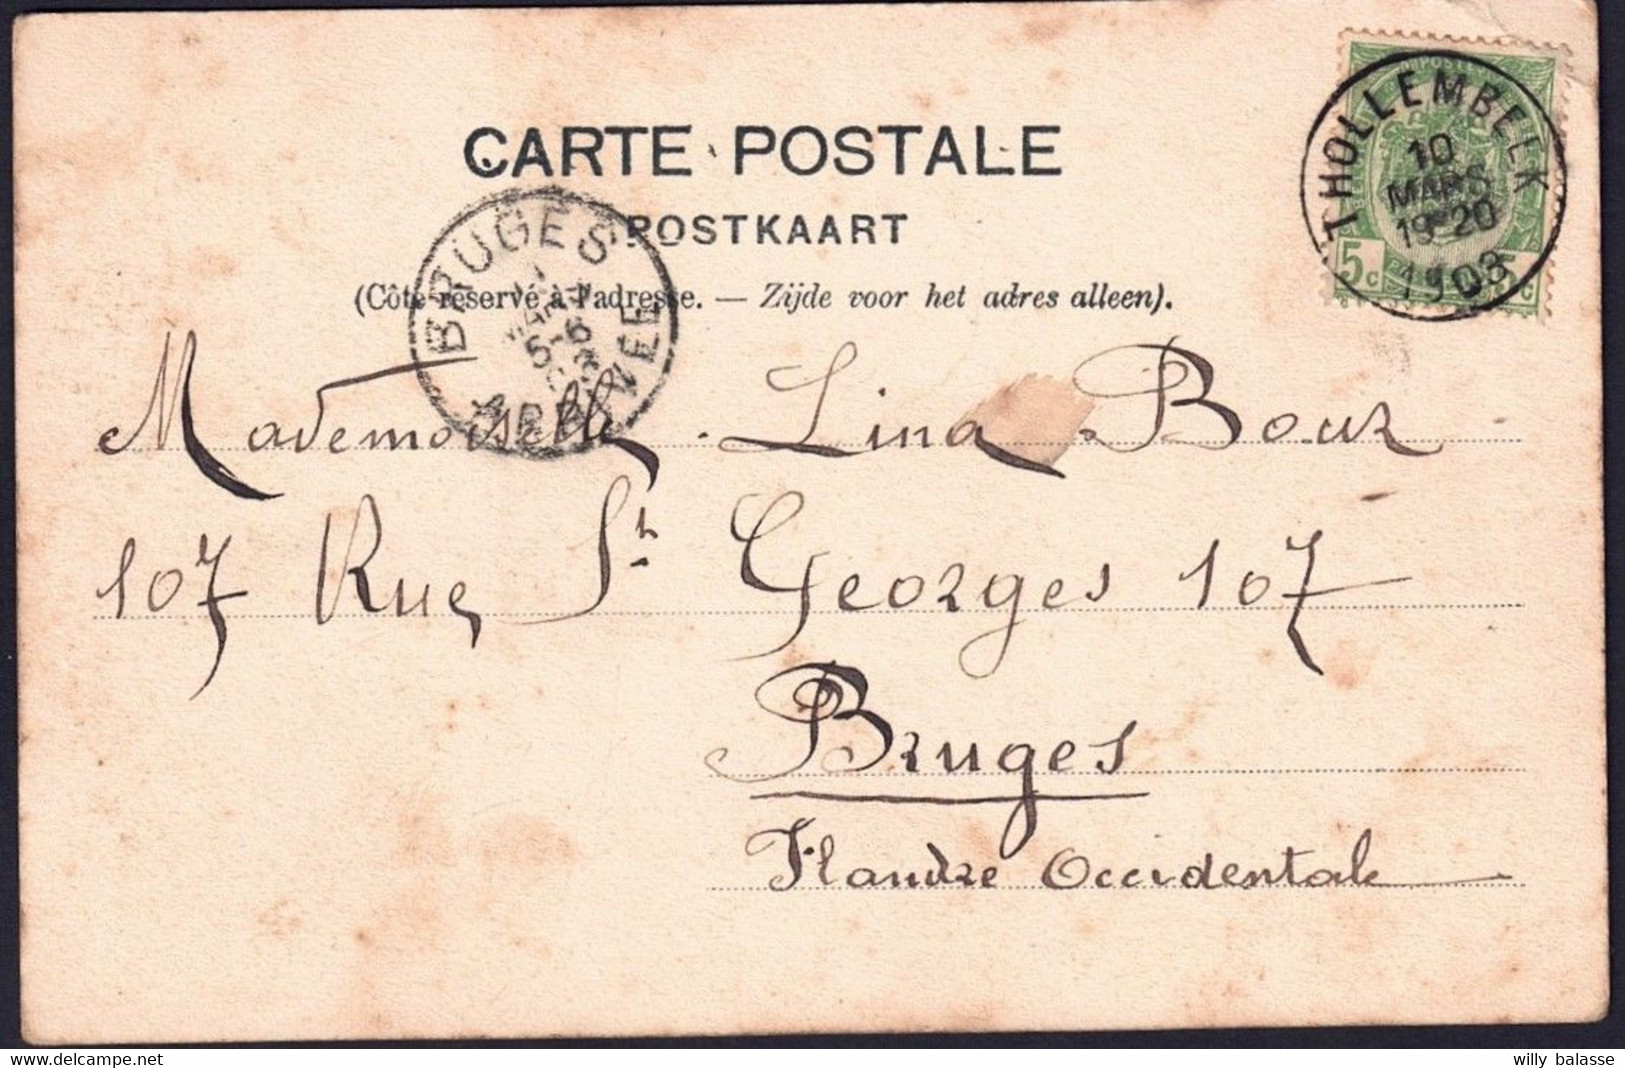 CARTE POSTALE
POSTKAART
(Côté réservé à l'adresse. — Zijde voor het adres alleen).
THOLLEMBEEK
10
MARS
19-20
1903
5c
BRUGES
ARRIVEE
Mademoiselle Lina Boux
107 Rue St Georges 107
Bruges
Flandre Occidentale
delcampe.net
willy balasse